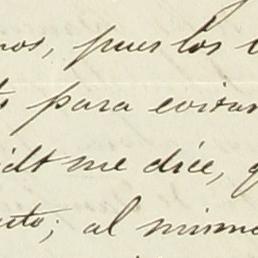 nos, pues los
para evitar
me dice,
; al mismo